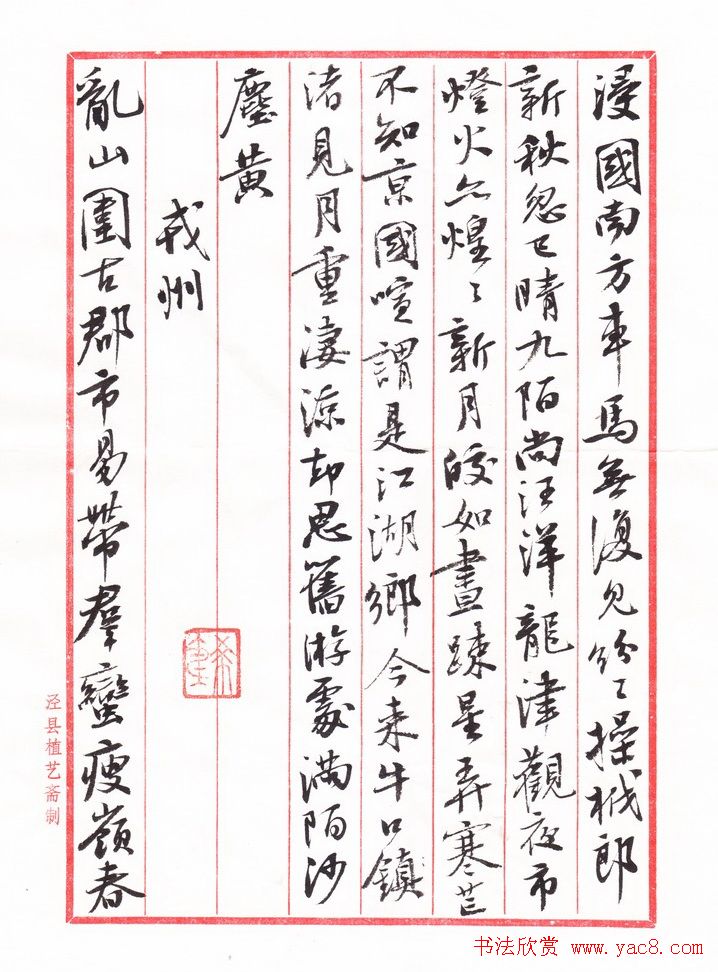 浸國南方車馬無復見紛〻操栰郎
新秋忽已晴九陌尚汪洋龍津觀夜市
燈火亦煌〻新月皎如晝疎星弄寒芒
不知京國喧謂是江湖鄉今来牛口鎮
渚見月重凄涼却思舊游處滿陌沙
塵黄
戎州
亂山圍古郡市易帶羣蠻瘦嶺春
泾县植艺斋制
书法欣赏 www.yac8.com